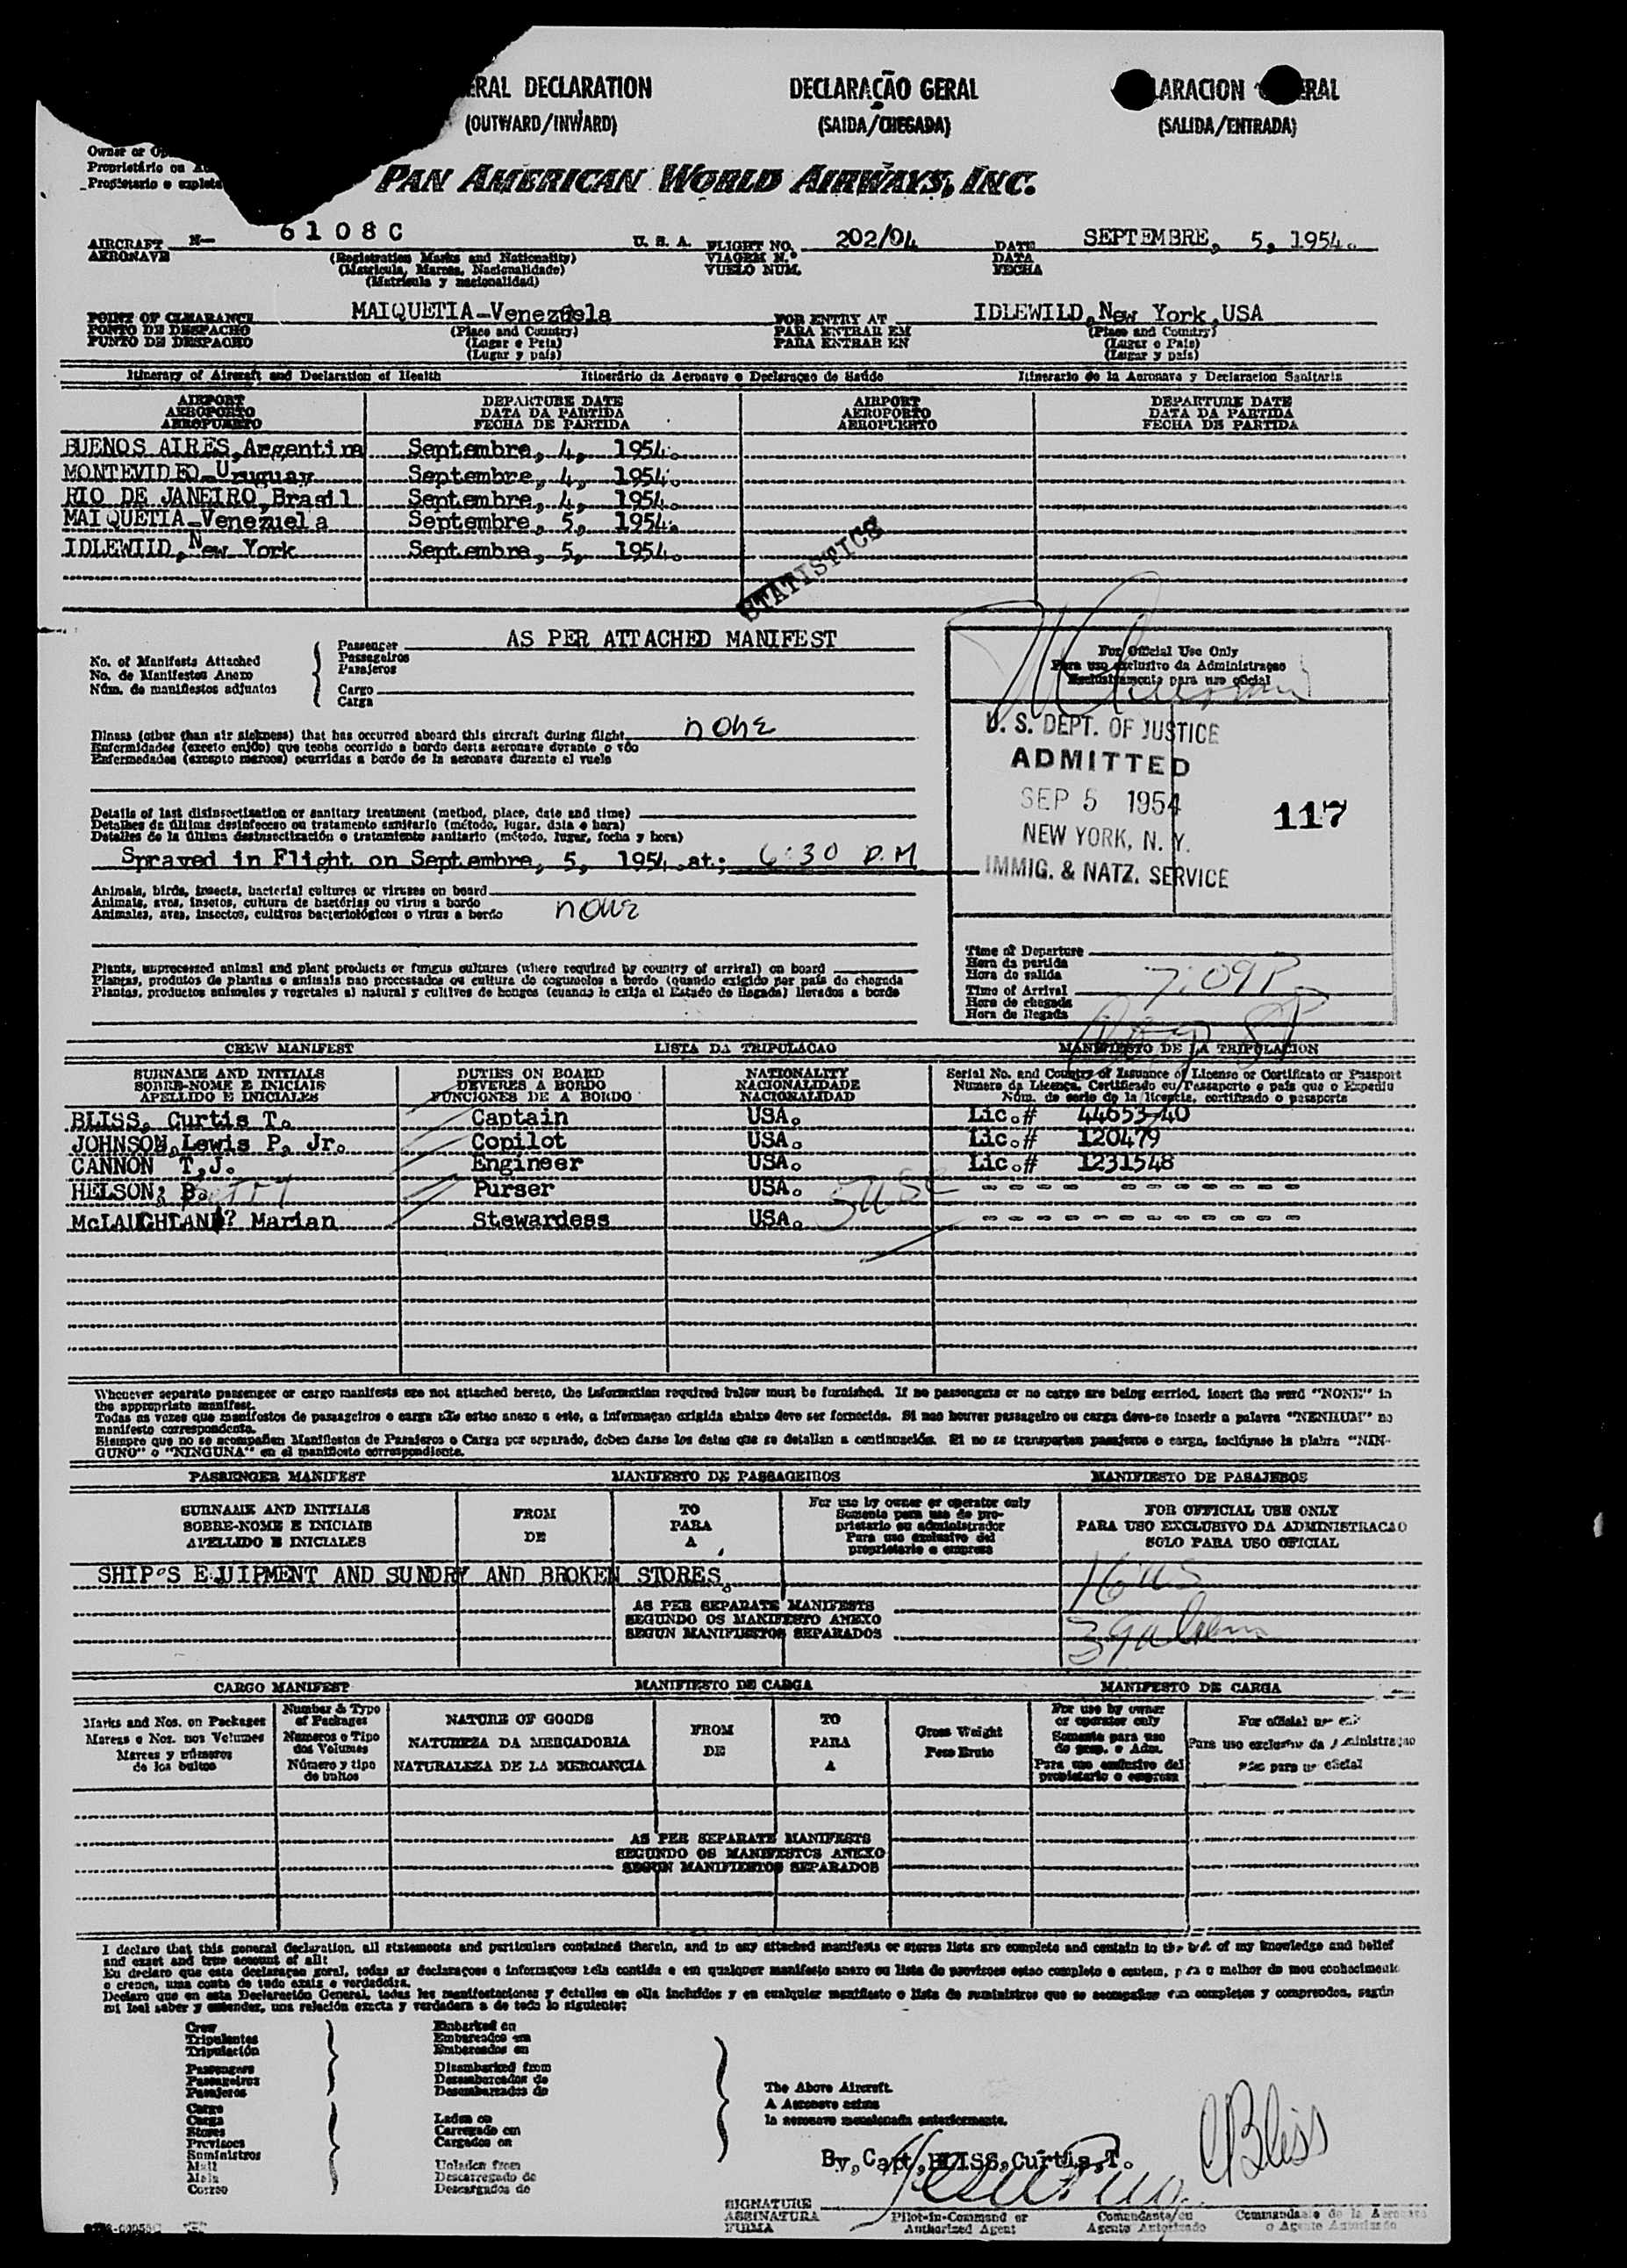 ERAL DECLARATION
(OUTWARD/INWARD)
DECLARAÇÃO GERAL
(SAIDA/CHEGADA)
ARACION ERAL
(SALIDA/ENTRADA)
Owner or O
Proprietário ou
Propietario o explota
PAN AMERICAN WORLD AIRWAYS, INC.
AIRCRAFT N- 6108C U. S. A. FLIGHT NO. 202/04 DATE SEPTEMBRE, 5, 1954.
AERONAVE (Registration Marks and Nationality) VIAGEM N.º DATA
(Matricula, Marcas, Nacionalidade) VUELO NUM. FECHA
(Matricula y nacionalidad)
POINT OF CLEARANCE MAIQUETIA-Venezuela FOR ENTRY AT IDLEWILD, New York, USA
PONTO DE DESPACHO (Place and Country) PARA ENTRAR EM (Place and Country)
PUNTO DE DESPACHO (Lugar e País) PARA ENTRAR EN (Lugar e País)
(Lugar y país) (Lugar y país)
Itinerary of Aircraft and Declaration of Health Itinerário da Aeronave e Declaraçao de Saúde Itinerario de la Aeronave y Declaracion Sanitaria
AIRPORT DEPARTURE DATE AIRPORT DEPARTURE DATE
AEROPORTO DATA DA PARTIDA AEROPORTO DATA DA PARTIDA
AEROPUERTO FECHA DE PARTIDA AEROPUERTO FECHA DE PARTIDA
BUENOS AIRES, Argentina Septembre, 4, 1954.
MONTEVIDEO-Uruguay Septembre, 4, 1954.
RIO DE JANEIRO, Brasil Septembre, 4, 1954.
MAIQUETIA-Venezuela Septembre, 5, 1954.
IDLEWILD, New York Septembre, 5, 1954.
STATISTICS
No. of Manifests Attached
No. de Manifestos Anexo
Núm. de manifiestos adjuntos
Passenger AS PER ATTACHED MANIFEST
Passageiros
Pasajeros
Cargo
Carga
For Official Use Only
Para uso exclusivo da Administraçao
Exclusivamente para uso oficial
U. S. DEPT. OF JUSTICE
ADMITTED
SEP 5 1954
NEW YORK, N. Y.
IMMIG. & NATZ. SERVICE
117
Illness (other than air sickness) that has occurred aboard this aircraft during flight none
Enfermidades (exceto enjôo) que tenha ocorrido a bordo desta aeronave durante o vôo
Enfermedades (excepto mareos) ocurridas a bordo de la aeronave durante el vuelo
Details of last disinsectisation or sanitary treatment (method, place, date and time)
Detalhes da última desinfecçao ou tratamento sanitario (método, lugar, data e hora)
Detalles de la última desinsectización o tratamiento sanitario (método, lugar, fecha y hora)
Sprayed in Flight on Septembre, 5, 1954.at; 6:30 P.M
Animals, birds, insects, bacterial cultures or viruses on board
Animais, aves, insetos, cultura de bactérias ou virus a bordo
Animales, aves, insectos, cultivos bacteriológicos o virus a bordo none
Plants, unprocessed animal and plant products or fungus cultures (where required by country of arrival) on board
Plantas, produtos de plantas e animais nao processados ou cultura de cogumelos a bordo (quando exigido por país de chegada
Plantas, productos animales y vegetales al natural y cultivos de hongos (cuando lo exija el Estado de llegada) llevados a bordo
Time of Departure
Hora da partida
Hora de salida
Time of Arrival 7:09P
Hora de chegada
Hora de llegada
CREW MANIFEST LISTA DA TRIPULACAO MANIFIESTO DE LA TRIPULACION
SURNAME AND INITIALS DUTIES ON BOARD NATIONALITY Serial No. and Country of Issuance of License or Certificate or Passport
SOBRE-NOME E INICIAIS DEVERES A BORDO NACIONALIDADE Numero da Licença, Certificado ou Passaporte e país que o Expediu
APELLIDO E INICIALES FUNCIONES DE A BORDO NACIONALIDAD Núm. de serie de la licencia, certificado o pasaporte
BLISS, Curtis T. Captain USA. Lic.# 44653-40
JOHNSON, Lewis P, Jr. Copilot USA. Lic.# 120479
CANNON T,J. Engineer USA. Lic.# 1231548
HELSON; B. Purser USA.
McLAUGHLAND? Marian Stewardess USA.
Whenever separate passenger or cargo manifests are not attached hereto, the information required below must be furnished. If no passengers or no cargo are being carried, insert the word "NONE" in
the appropriate manifest.
Todas as vezes que manifestos de passageiros e carga não estao anexo a este, a informaçao exigida abaixo deve ser fornecida. Si nao houver passageiro ou carga deve-se inserir a palavra "NENHUM" no
manifesto correspondente.
Siempre que no se acompañen Manifiestos de Pasajeros o Carga por separado, deben darse los datos que se detallan a continuación. Si no se transporten pasajeros o carga, inclúyase la plabra "NIN-
GUNO" o "NINGUNA" en el manifiesto correspondiente.
PASSENGER MANIFEST MANIFESTO DE PASSAGEIROS MANIFIESTO DE PASAJEROS
SURNAME AND INITIALS FROM TO For use by owner or operator only FOR OFFICIAL USE ONLY
SOBRE-NOME E INICIAIS DE PARA Somente para uso do pro- PARA USO EXCLUSIVO DA ADMINISTRACAO
APELLIDO E INICIALES A prietario ou administrador SOLO PARA USO OFICIAL
Para uso exclusivo del
propietario o empresa
SHIP'S EQUIPMENT AND SUNDRY AND BROKEN STORES. 16 us
AS PER SEPARATE MANIFESTS
SEGUNDO OS MANIFESTO ANEXO
SEGUN MANIFIESTOS SEPARADOS
3 aliens
CARGO MANIFEST MANIFIESTO DE CARGA MANIFESTO DE CARGA
Marks and Nos. on Packages
Marcas e Nos. nos Volumes
Marcas y números
de los bultos
Number & Type
of Packages
Numeros e Tipo
dos Volumes
Número y tipo
de bultos
NATURE OF GOODS
NATUREZA DA MERCADORIA
NATURALEZA DE LA MERCANCIA
FROM
DE
TO
PARA
A
Gross Weight
Peso Bruto
For use by owner
or operator only
Somente para uso
do prop. e Adm.
Para uso exclusivo del
propietario o empresa
For official use
Para uso exclusivo da Administraçao
para uso oficial
AS PER SEPARATE MANIFESTS
SEGUNDO OS MANIFESTOS ANEXO
SEGUN MANIFIESTOS SEPARADOS
I declare that this general declaration, all statements and particulars contained therein, and in any attached manifests or stores lists are complete and contain to the best of my knowledge and belief
and exact and true account of all:
Eu declaro que esta declaraçao geral, todas as declaraçoes e informaçoes nela contida e em qualquer manifesto anexo ou lista de provisoes estao completo e contem, para o melhor do meu conhecimento
e crença, uma conta de tudo exata e verdadeira.
Declaro que en esta Declaración General, todas las manifestaciones y detalles en ella incluidos y en cualquier manifiesto o lista de suministros que se acompañan son completos y comprenden, según
mi leal saber y entender, una relación exacta y verdadera a de todo lo siguiente:
Crew
Tripulantes
Tripulación
Passengers
Passageiros
Pasajeros
Cargo
Carga
Stores
Provisoes
Suministros
Mail
Mala
Correo
Embarked on
Embarcados em
Embarcados en
Disembarked from
Desembarcados de
Desembarcados de
Laden on
Carregado em
Cargados en
Unladen from
Descarregado de
Descargados de
The Above Aircraft.
A Aeronave acima
la aeronave mencionada anteriormente.
By, Capt, BLISS, Curtis, T.
CBliss
SIGNATURE
ASSINATURA
FIRMA
Pilot-in-Command or
Authorized Agent
Comandante/ou
Agente Autorizado
Commandante de la Aeronave
o Agente Autorizado